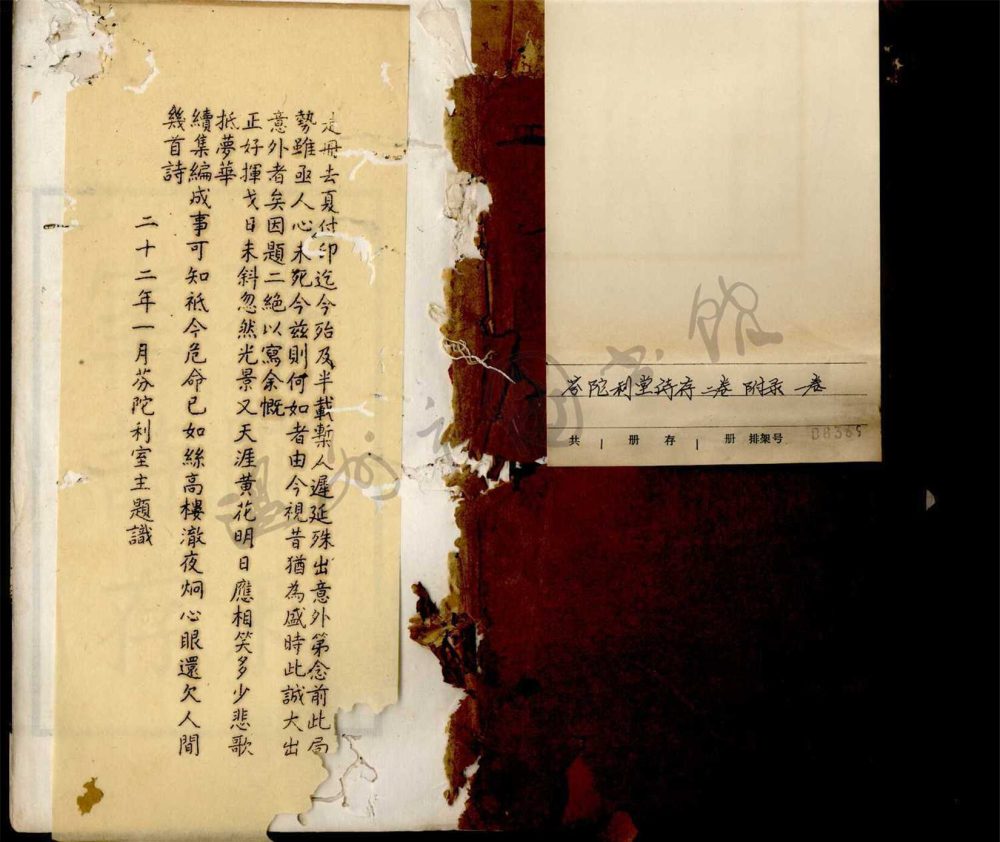 是冊去夏付印迄今殆及半載槧人遲延殊出意外第念前此局
勢雖亟人心未死今茲則何如者由今視昔猶為盛時此誠大出
意外者矣因題二絕以寫余慨
正好揮戈日未斜忽然光景又天涯黃花明日應相笑多少悲歌
抵夢華
續集編成事可知祇今危命已如絲高樓澈夜炯心眼還欠人間
幾首詩
二十二年一月芬陀利室主題識
芬陀利室诗存二卷 附录 一卷
共 1 册 存 1 册 排架号
温州市图书馆